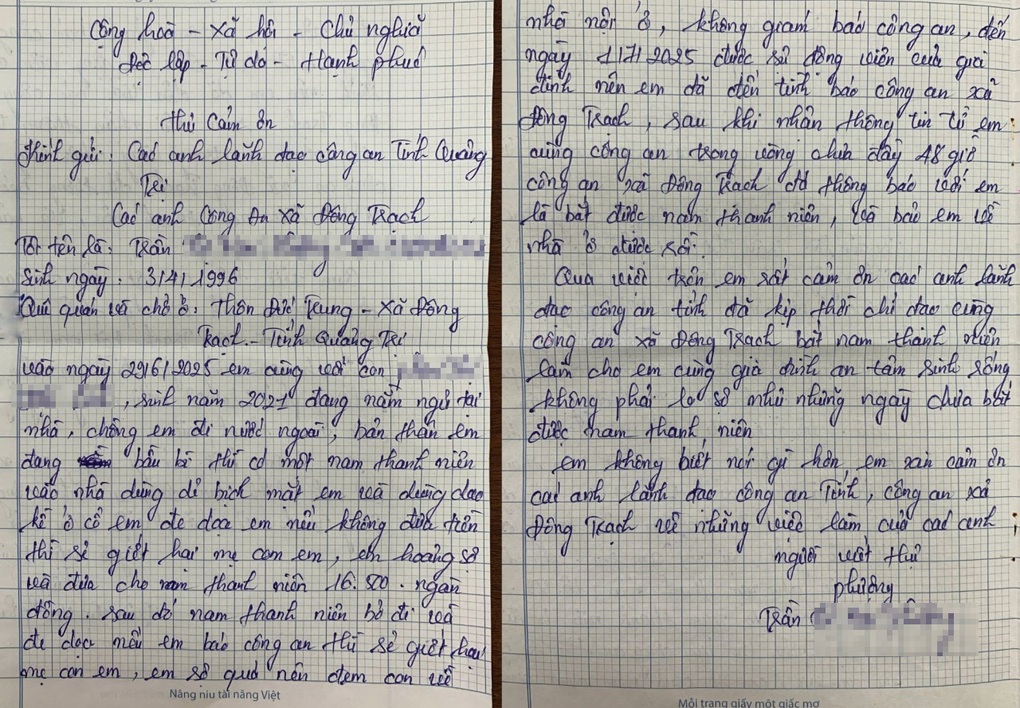 Cộng hoà - Xã hội - Chủ nghĩa
Độc lập - Tự do - Hạnh phúc
Thư Cảm ơn
Kính gửi: Các anh lãnh đạo công an Tỉnh Quảng
Trị
Các anh Công An xã Đông Trạch
Tôi tên là: Trần
Sinh ngày: 3/4/1996
Quê quán và chổ ở: thôn Đức Trung - xã Đông
Trạch - Tỉnh Quảng Trị
vào ngày 29/6/2025 em cùng với con
, sinh năm 2021 đang nằm ngủ tại
nhà, chồng em đi nước ngoài, bản thân em
đang bầu bì thì có một nam thanh niên
vào nhà dùng dẻ bịch mặt em và dùng dao
kề ở cổ em đe dọa em nếu không đưa tiền
thì sẽ giết hai mẹ con em, em hoảng sợ
và đưa cho nam thanh niên 16.500. ngàn
đồng. sau đó nam thanh niên bỏ đi và
đe dọc nếu em báo công an thì sẽ giết hai
mẹ con em, em sợ quá nên đem con về
Nâng niu tài năng Việt
nhà nội ở, không giám báo công an, đến
ngày 1/7/2025 được sự động viên của gia
đình nên em đã đến trình báo công an xã
Đông Trạch, sau khi nhận thông tin từ em
cùng công an trong vòng chưa đầy 48 giờ
công an xã Đông Trạch đã thông báo với em
là bắt được nam thanh niên, và bảo em về
nhà ở được rồi.
Qua việc trên em rất cảm ơn các anh lãnh
đạo công an tỉnh đã kịp thời chỉ đạo cùng
công an xã Đông Trạch bắt nam thanh niên
làm cho em cùng gia đình an tâm sinh sống
không phải lo sợ như những ngày chưa bắt
được nam thanh niên
em không biết nói gì hơn, em xin cảm ơn
các anh lãnh đạo công an Tỉnh, công an xã
Đông Trạch về những việc làm của các anh
người viết thư
phượng
Trần
Mỗi trang giấy một giấc mơ